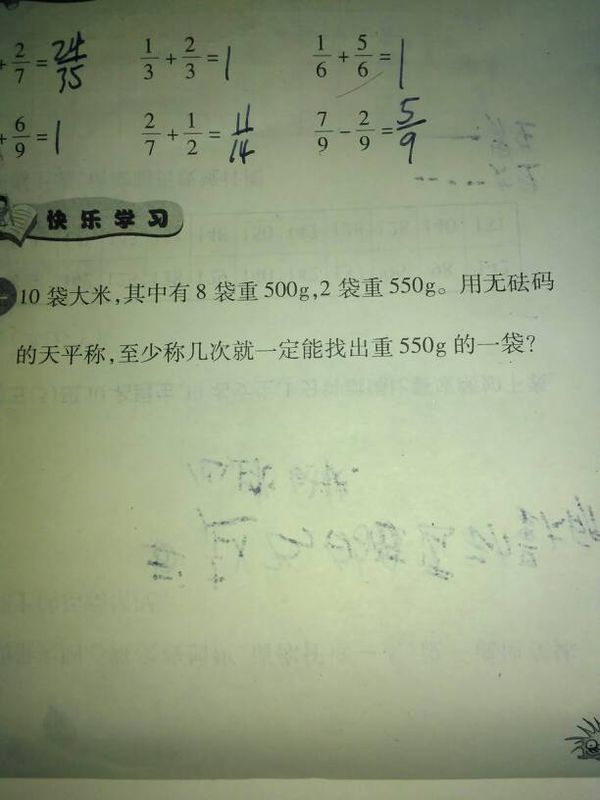 + 2/7 = 24/35 1/3 + 2/3 = 1 1/6 + 5/6 = 1
+ 6/9 = 1 2/7 + 1/2 = 11/14 7/9 − 2/9 = 5/9
快乐学习
10 袋大米,其中有 8 袋重 500g,2 袋重 550g。用无砝码
的天平称,至少称几次就一定能找出重 550g 的一袋?